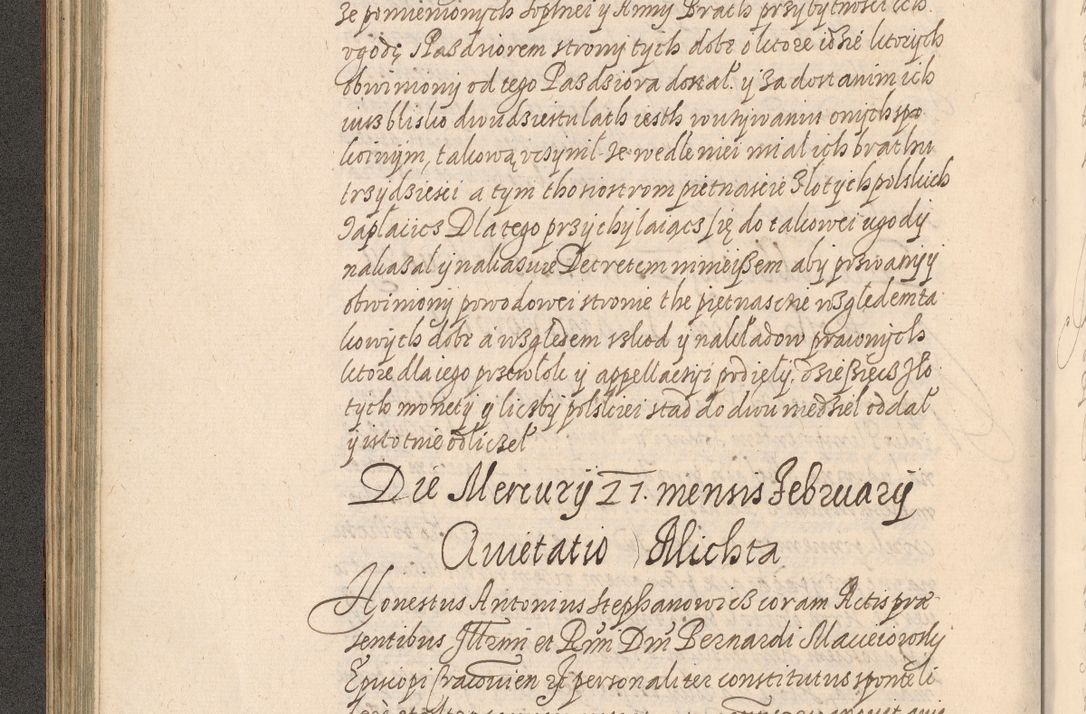 Ze pomienionych Zophiei y Anny Brath przybytnosci ich
vgodę Pazdziorem strony tych dobr o ktore idzie ktorych
obwiniony od tego Pazdziora dostał y za dostanim ich
iusz blisko dwudziestu lath iesth w uzywaniu onych spo
koinym, takową vczynił ze wedle niei miał ich brathu
trzydziesci a tym tho siostrom pietnascie Złotych polskich
Zapłacicz Dlatego przychylaiącz się do takowei ugody
nakazał y nakazuie Decretem mnieiszem aby pozwany y
obwiniony powodowei stronie the pietnascie względem ta
kowych dobr a względem szkod y nakładow prawnych
ktore dla iego przewłoki y appellacyi podięły, dziesięcz zło
tych monety y liczby polskiei stąd do dwu niedziel oddał
y istotnie odliczeł
Die Mercury 21. mensis February
Quietatio Michta
Honestus Antonius Stephanowicz coram Actis præ
sentibus Illrmi et Rmi Dni Bernardi Macieiowsky
Episcopi Cracovien etc personaliter constitutus sponte li